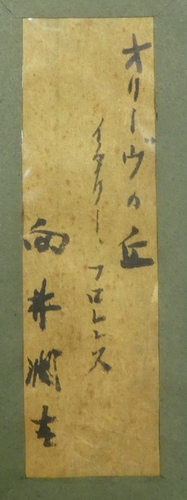 オリーヴの丘
イタリー、フロレンス
向井潤吉